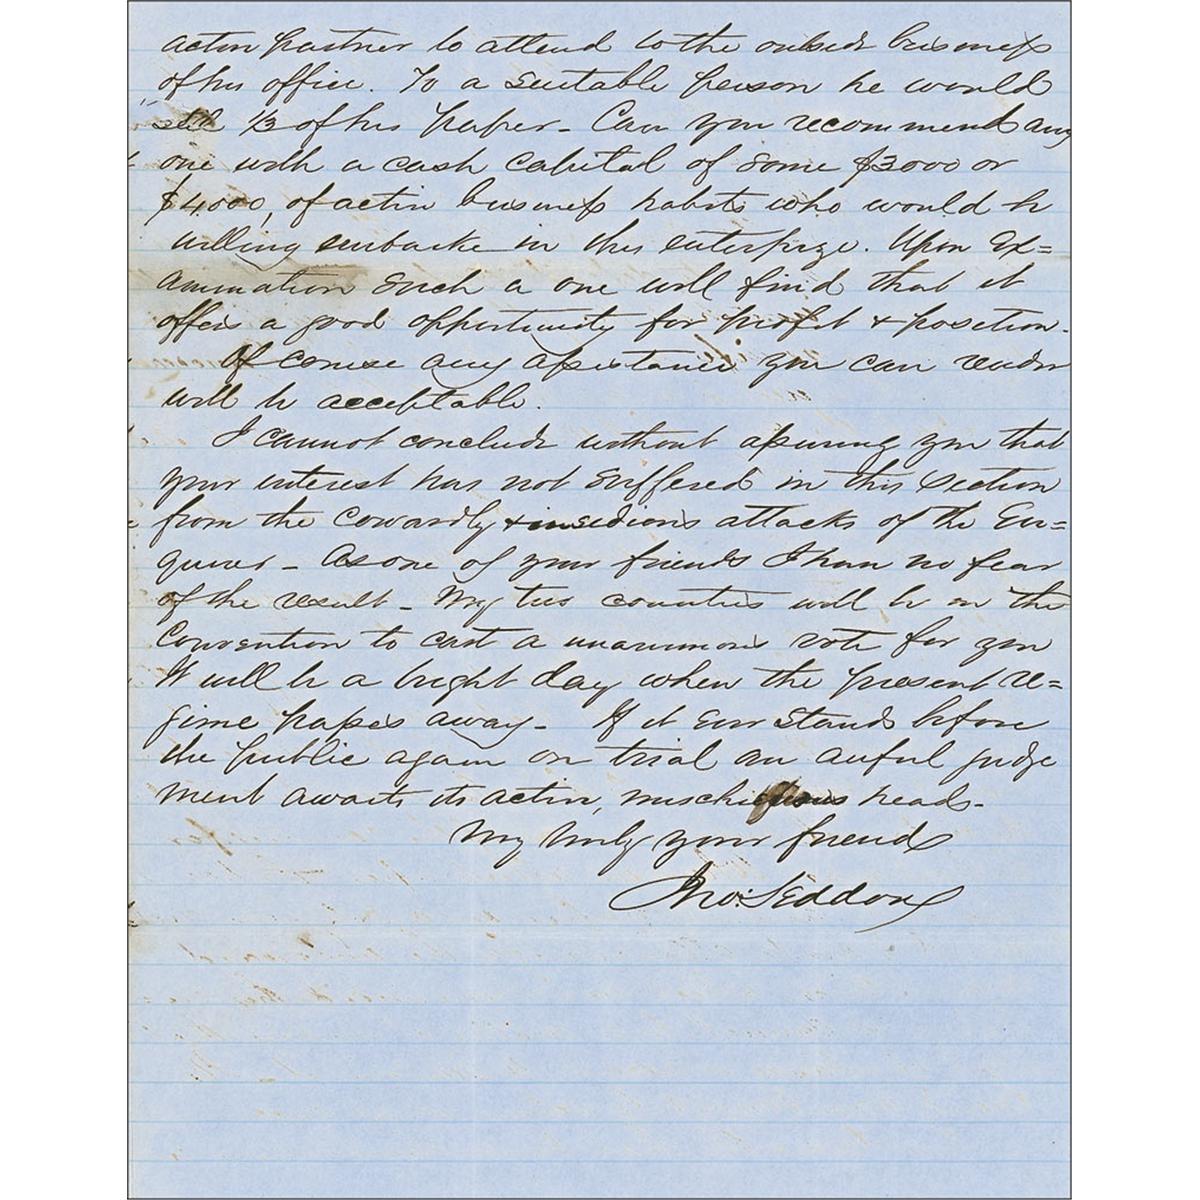 active partner to attend to the outside business
of his office. To a suitable person he would
sell 1/3 of his paper - Can you recommend any
one with a cash capital of some $3000 or
$4000, of active business habits who would be
willing embarke in this enterprize. Upon Ex=
amination Such a one will find that it
offers a good opportunity for profit & position.
Of course any assistance you can render
will be acceptable.
I cannot conclude without assuring you that
your interest has not Suffered in this Section
from the Cowardly & insidious attacks of the En=
quirer - As one of your friends I have no fear
of the result - My two counties will be in the
Convention to cast a unanimous vote for you
It will be a bright day when the present re=
gime passes away - If it ever Stands before
the public again on trial an awful judge
ment awaits its active, mischievous heads -
Very truly your friend
Jno: Seddon